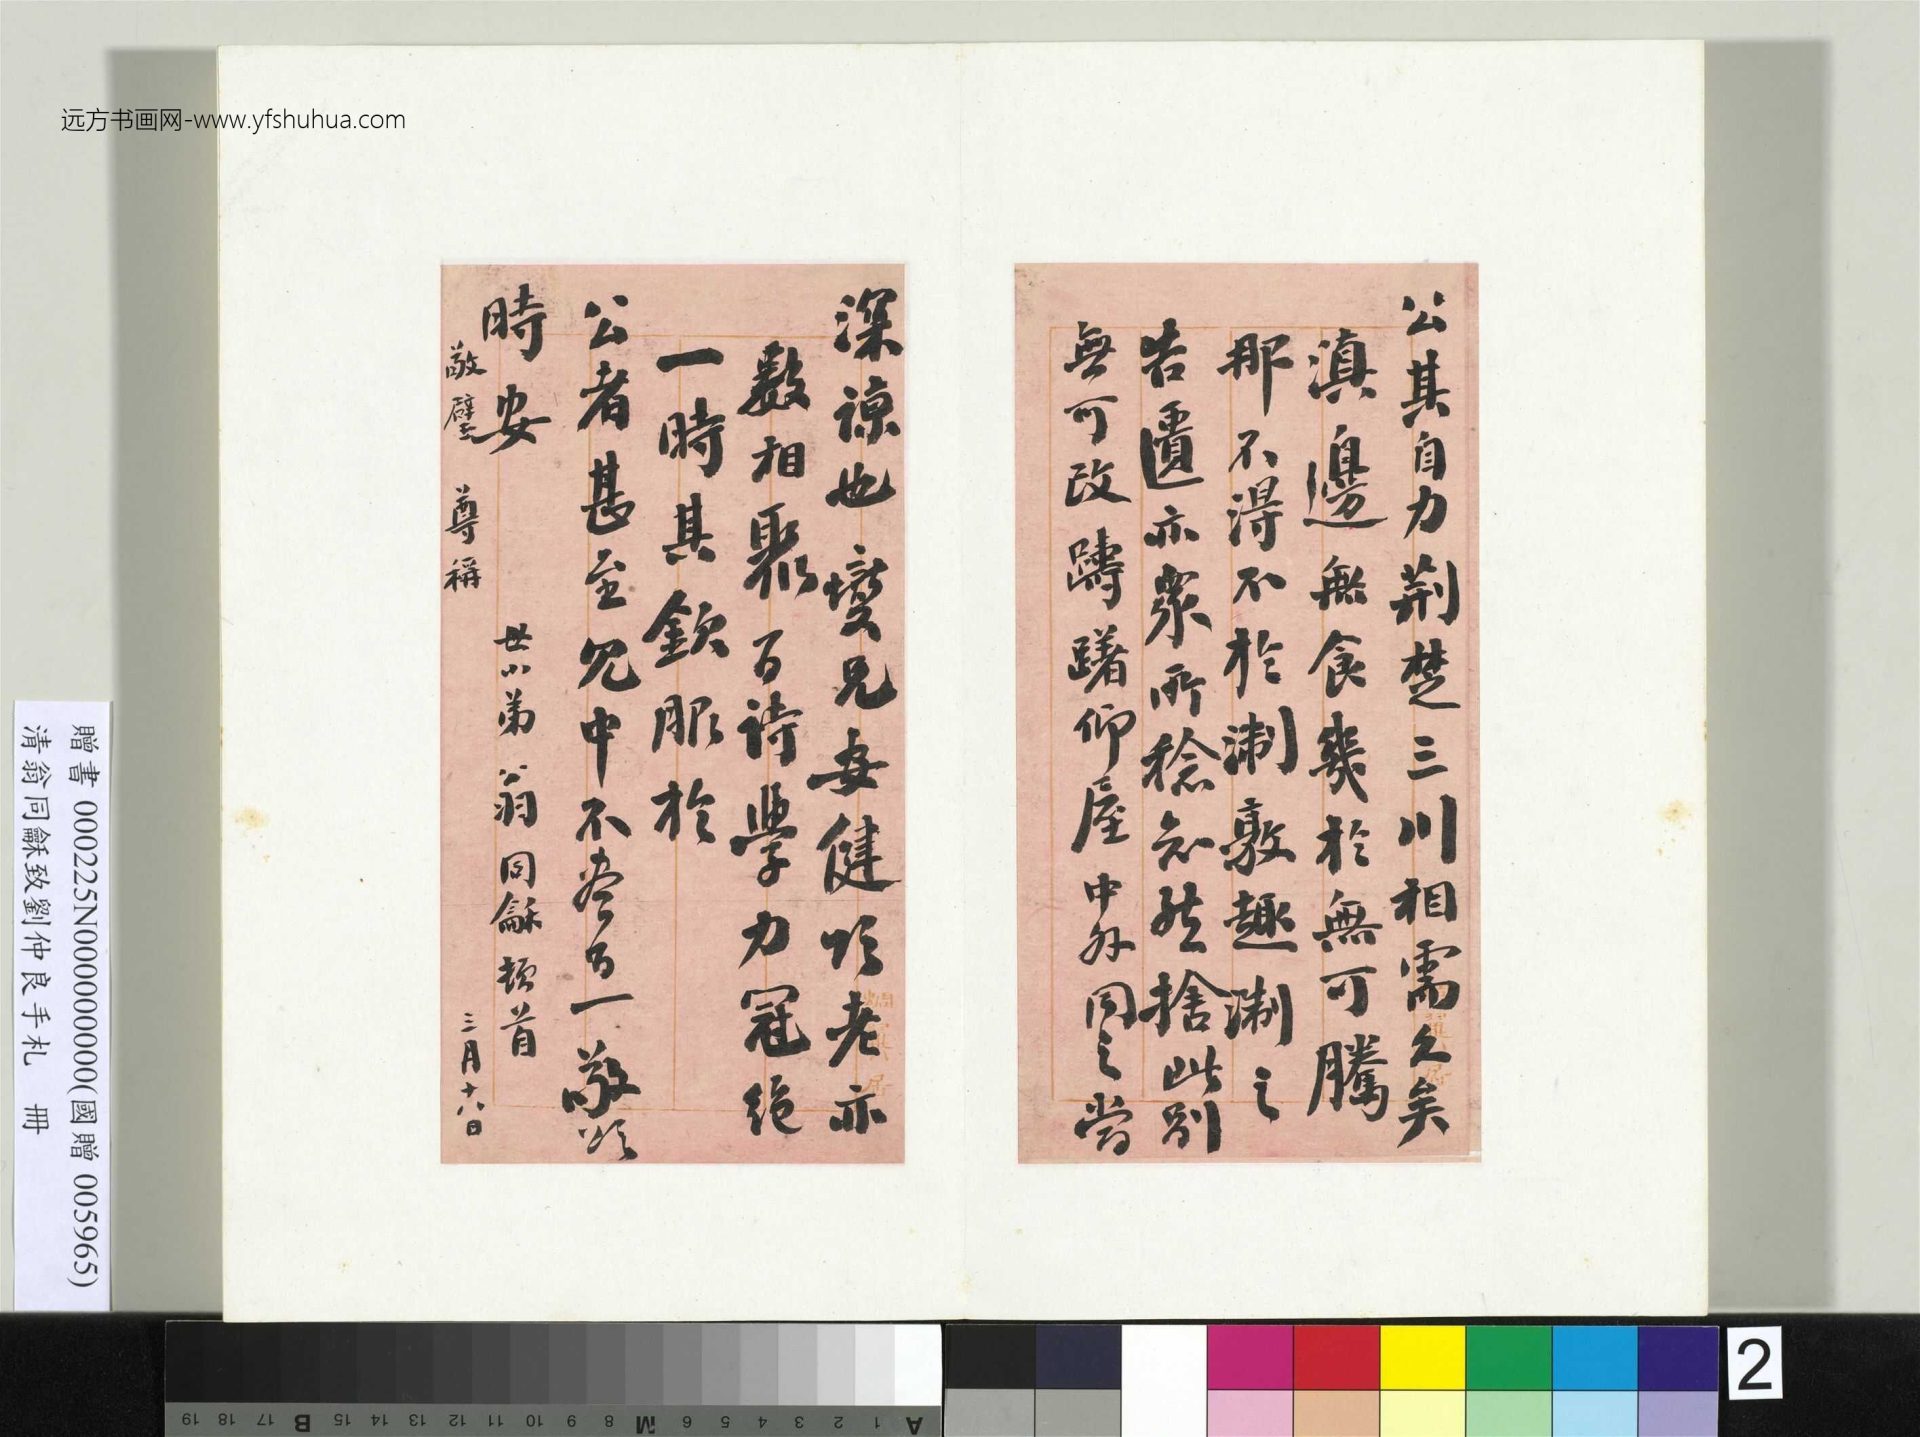 远方书画网-www.yfshuhua.com
公其自力荆楚三川相需久矣
滇邊無食幾於無可騰
那不得不於湘敦趣湘之
告匱亦衆所稔知然捨此別
無可改躊躇仰屋中外同之當
深諒也 變兄安健頌老亦
數相聚 百詩學力冠絶
一時其欽服於
公者甚至 中不盡百一敬頌
時安
世小弟 翁同龢頓首
敬璧 尊稱
三月十八日
贈書 000225N000000000(國贈 005965)
清翁同龢致劉仲良手札 冊
A 1 2 3 4 5 6 M 8 9 10 11 12 13 14 15 B 17 18 19
2